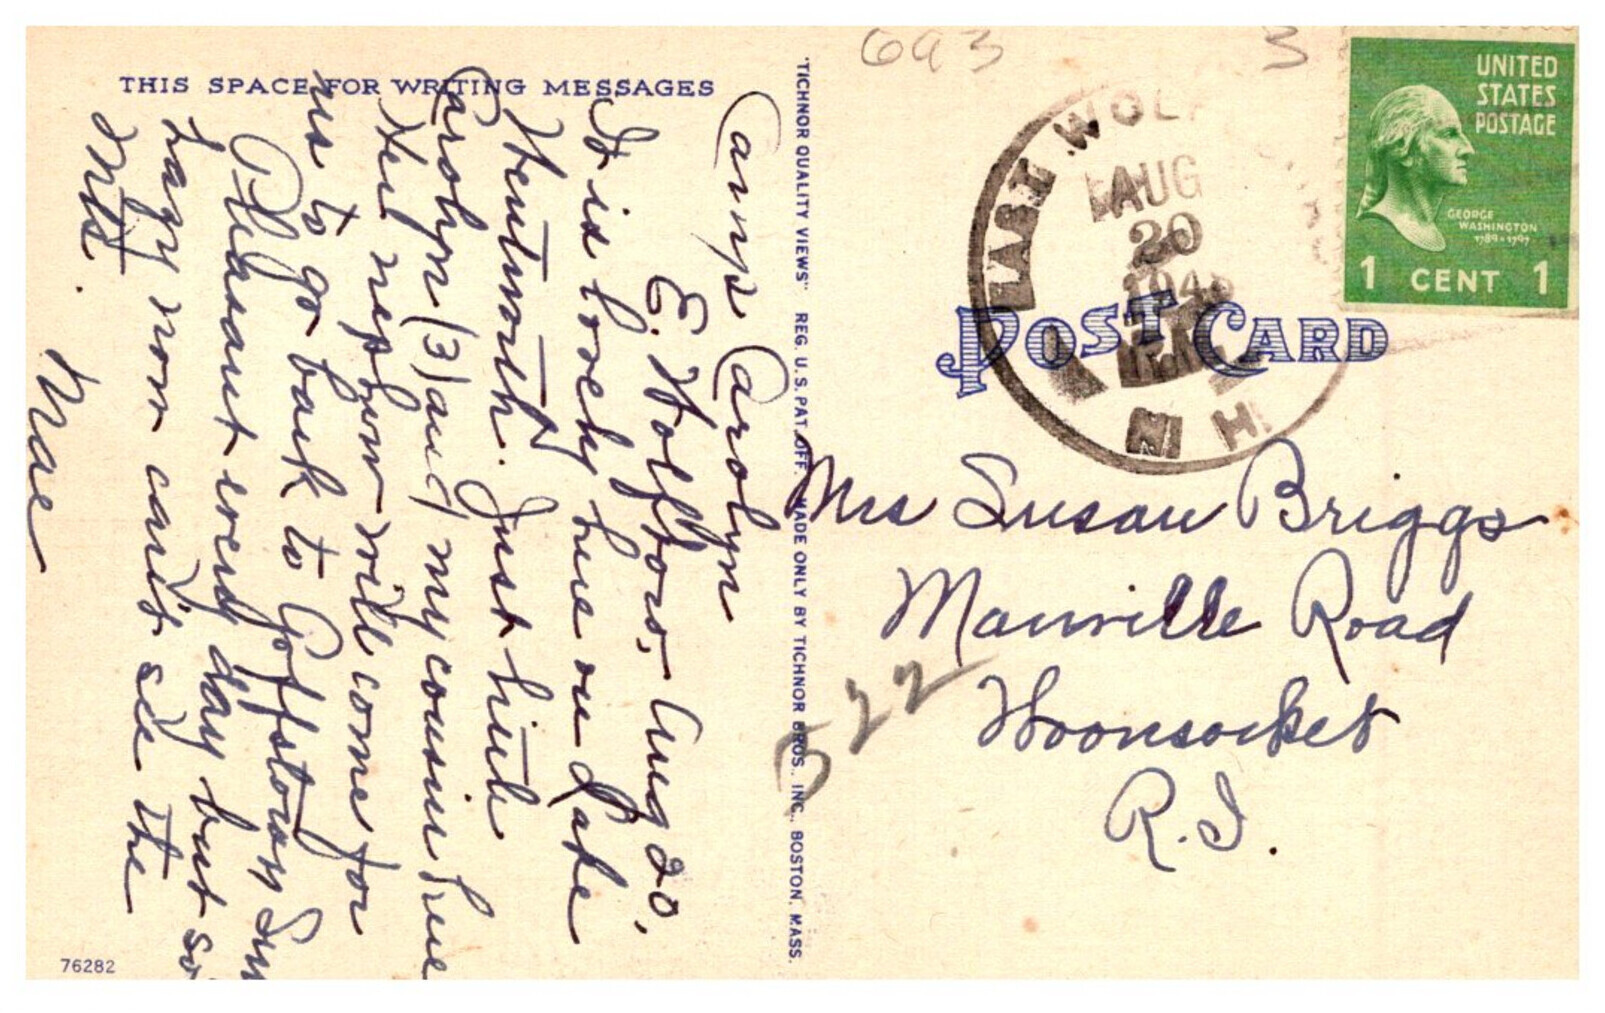 THIS SPACE FOR WRITING MESSAGES
Camp Carolyn
E. Wolfboro, Aug 20,
It is lovely here on Lake
Wentworth. Just little
Carolyn (3) and my cousin here
Her nephew will come for
us to go back to Goffstown Sun
Pleasant every day but so
hazy now can't see the
Mts.
Mae
76282
"TICHNOR QUALITY VIEWS" REG. U.S. PAT. OFF. MADE ONLY BY TICHNOR BROS., INC., BOSTON, MASS.
693
3
EAST WOLF
AUG
20
194
N H
UNITED
STATES
POSTAGE
GEORGE
WASHINGTON
1789-1797
1 CENT 1
POST CARD
Mrs Susan Briggs
Manville Road
Woonsocket
R.I.
522